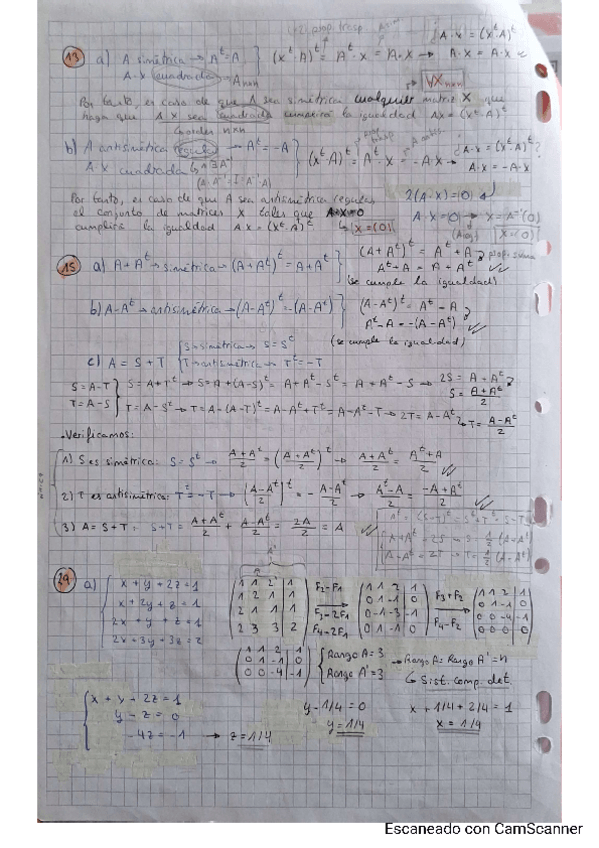 13 a) A simétrica → A^t = A } (x^t·A)^t = A^t·x = A·x → A·x = A·x
A·x cuadrada A_nxn
¿A·x = (x^t·A)^t
∀X_nxn
Por tanto, es caso de que A sea simétrica cualquier matriz X que
haga que A·X sea cuadrada cumplirá la igualdad AX = (X^t·A)^t
b) A antisimétrica regular → A^t = -A } (x^t·A)^t = A^t·x = -A·x → ¿A·x = (x^t·A)^t?
A·x cuadrada ∃A^-1
(A·A^-1 = I = A^-1·A)
A·x = -A·x
2(A·x) = (0)
Por tanto, es caso de que A sea antisimétrica regular
el conjunto de matrices X tales que A·X=0
cumplirá la igualdad A·X = (X^t·A)^t
X = (0)
A·x = (0) → x = A^-1(0)
X = (0)
15 a) A+A^t → simétrica → (A+A^t)^t = A+A^t } (A+A^t)^t = A^t+A
A^t+A = A+A^t
(se cumple la igualdad)
b) A-A^t → antisimétrica → (A-A^t)^t = -(A-A^t) } (A-A^t)^t = A^t-A
A^t-A = -(A-A^t)
(se cumple la igualdad)
c) A = S+T { S → simétrica → S = S^t
T → antisimétrica → T^t = -T
S = A-T } S = A+T^t → S = A+(A-S)^t = A+A^t-S^t = A+A^t-S → 2S = A+A^t
S = (A+A^t)/2
T = A-S T = A-S^t → T = A-(A-T)^t = A-A^t+T^t = A-A^t-T → 2T = A-A^t → T = (A-A^t)/2
Verificamos:
1) S es simétrica: S = S^t → (A+A^t)/2 = ((A+A^t)/2)^t → (A+A^t)/2 = (A^t+A)/2
2) T es antisimétrica: T^t = -T → ((A-A^t)/2)^t = -(A-A^t)/2 → (A^t-A)/2 = (-A+A^t)/2
3) A = S+T: S+T = (A+A^t)/2 + (A-A^t)/2 = 2A/2 = A
A^t = (S+T)^t = S^t+T^t = S-T
A+A^t = 2S → S = 1/2 (A+A^t)
A-A^t = 2T → T = 1/2 (A-A^t)
29 a) { x+y+2z=1
x+2y+z=1
2x+y+z=1
2x+3y+3z=2
A A'
(1 1 2 | 1
1 2 1 | 1
2 1 1 | 1
2 3 3 | 2)
F2-F1
F3-2F1
F4-2F1
(1 1 2 | 1
0 1 -1 | 0
0 -1 -3 | -1
0 1 -1 | 0)
F3+F2
F4-F2
(1 1 2 | 1
0 1 -1 | 0
0 0 -4 | -1
0 0 0 | 0)
(1 1 2 | 1
0 1 -1 | 0
0 0 -4 | -1)
{ Rango A = 3
Rango A' = 3
→ Rango A = Rango A' = n
Sist. comp. det.
{ x+y+2z=1
y-z=0
-4z=-1 → z=1/4
y-1/4=0
y=1/4
x+1/4+2/4=1
x=1/4
Escaneado con CamScanner